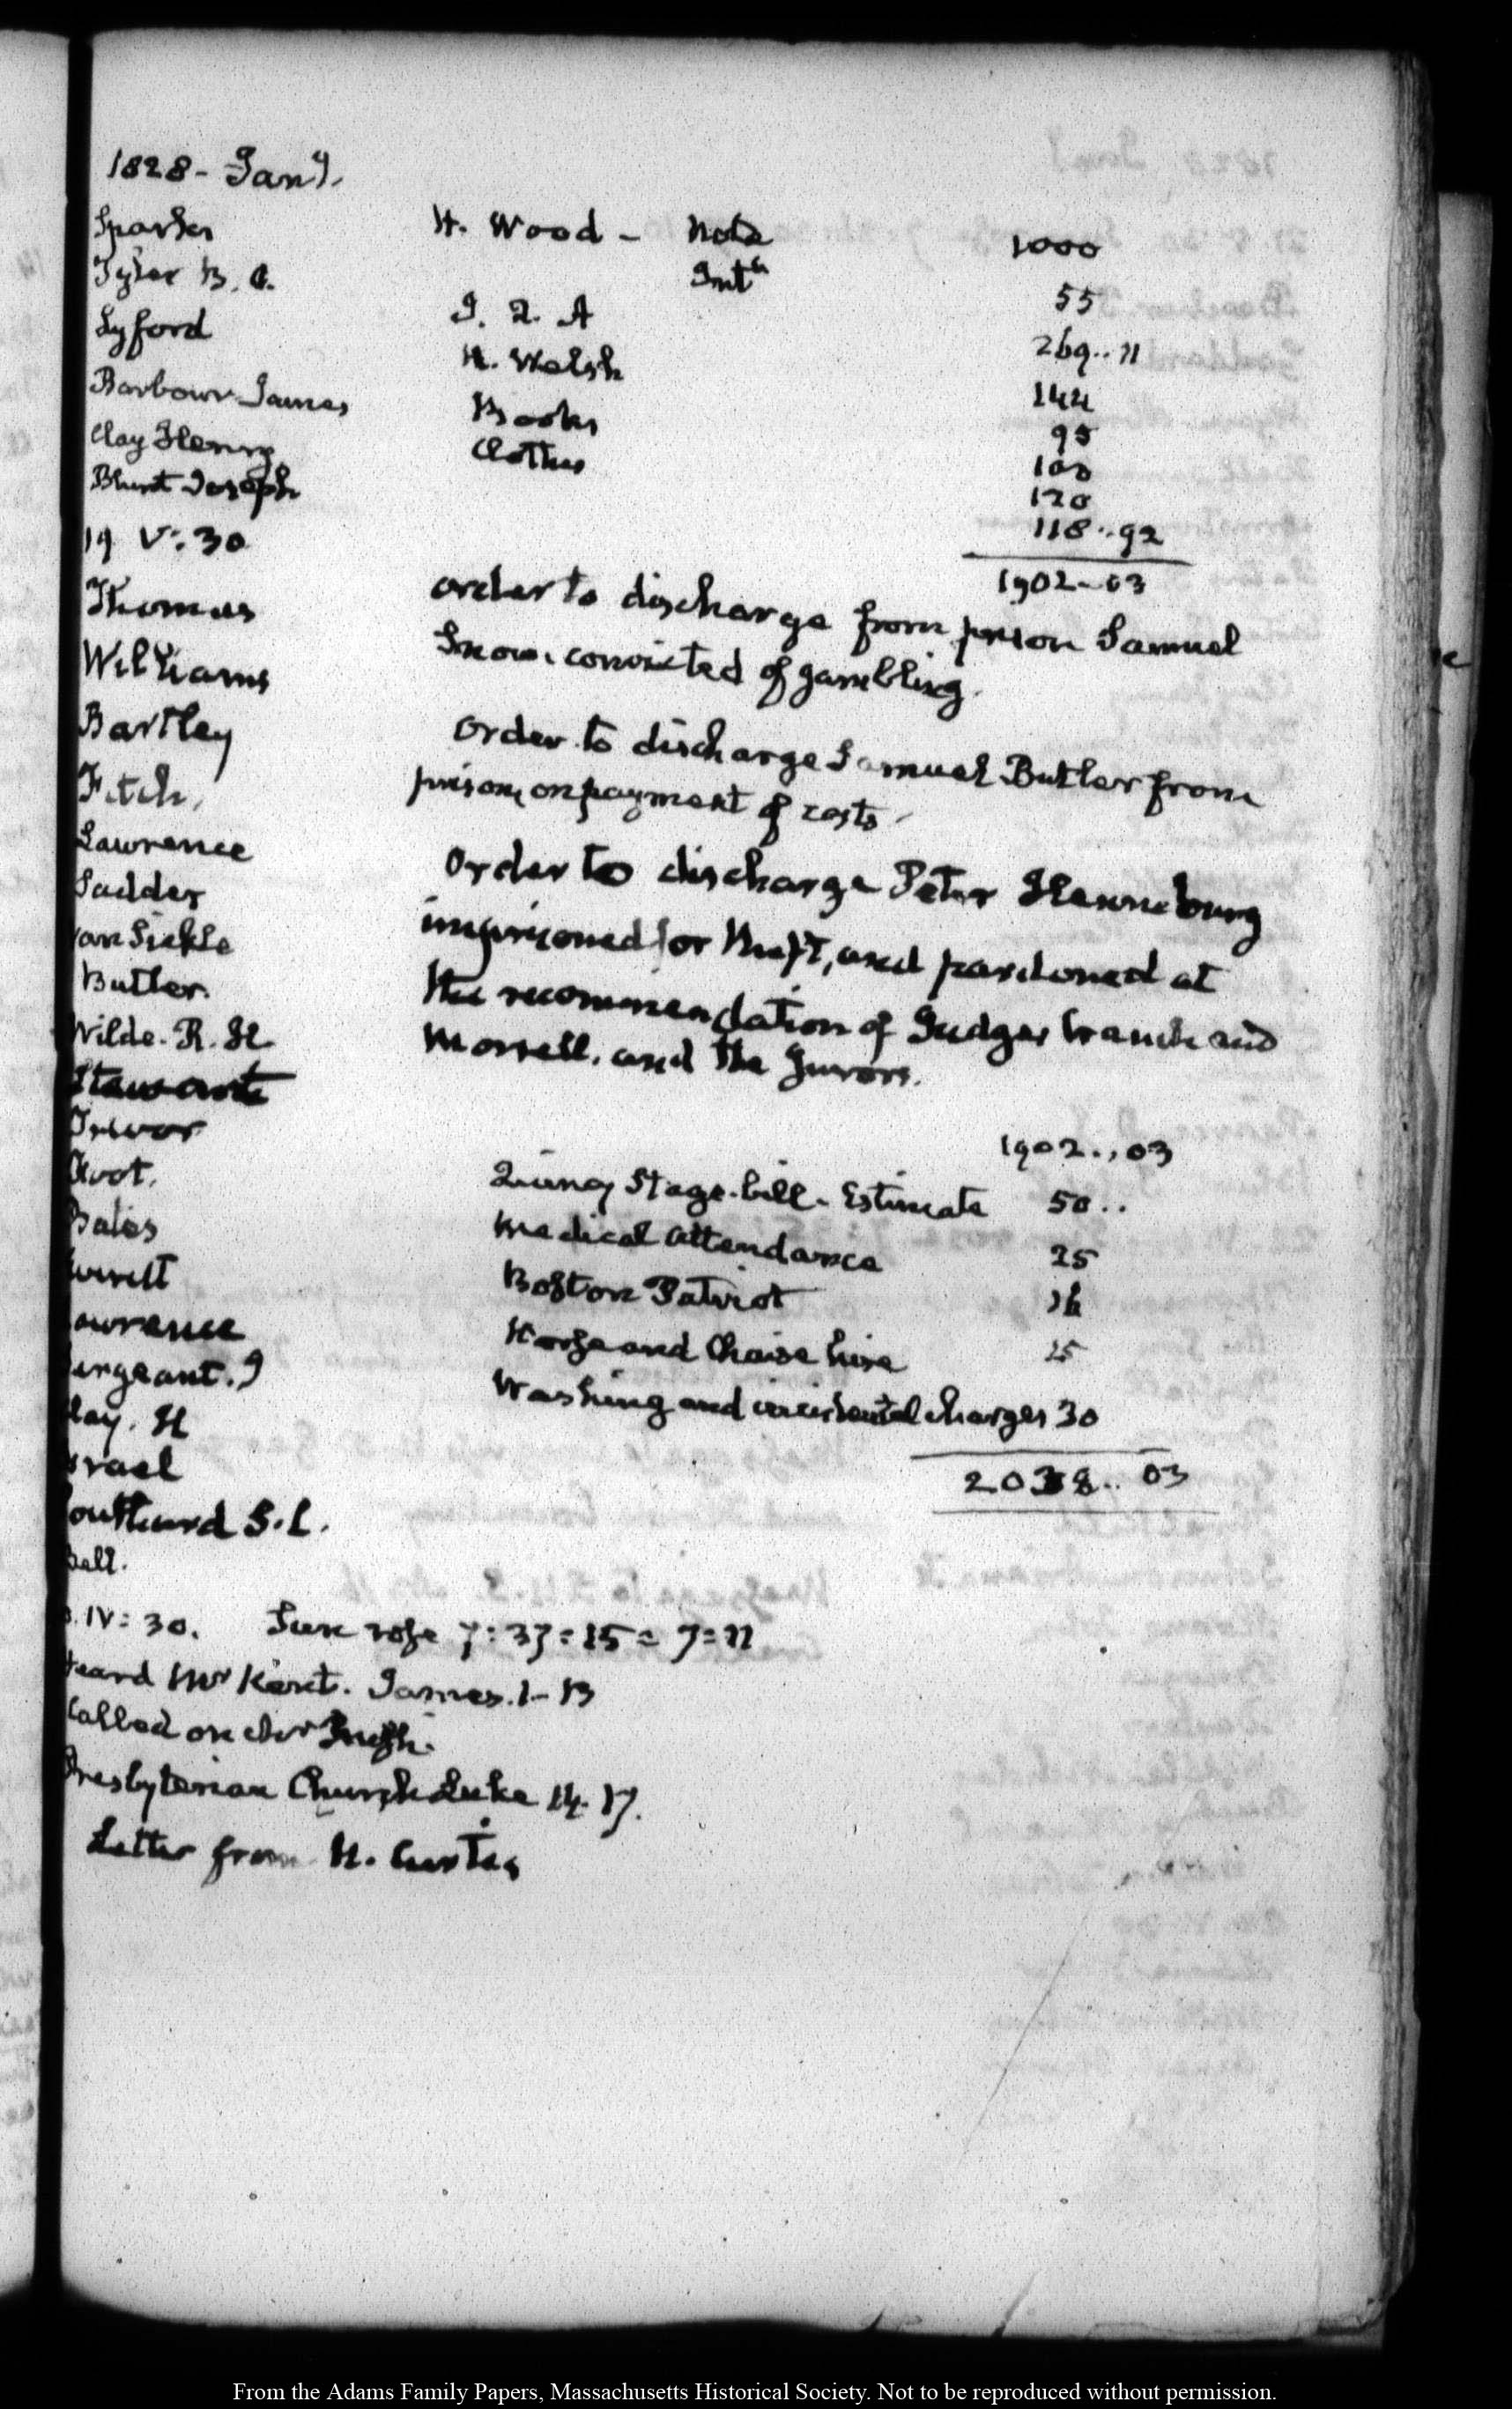 1828 - Jany.
Sparks H. Wood - Note 1000
Tyler B. O. Intt 55
Lyford J. Q. A 269.. 11
Barbour James H. Welsh 144
Clay Henry Books 95
Blunt Joseph Clothes 100
120
118..92
19 V: 30 1902-03
Thomas order to discharge from prison Samuel
Williams Snow. convicted of gambling.
Bartley order to discharge Samuel Butler from
Fitch, prison, on payment of costs.
Lawrence Order to discharge Peter Henneburg
imprisoned for theft, and pardoned at
an Sickle the recommendation of Judges Cranch and
Butler. Morsell, and the Jurors.
Wilde. R. H
Stewart
Trevor 1902.,03
Quincy Stage-bill - Estimate 50..
Bates Medical Attendance 25
Boston Patriot 16
awrence Horse and Chaise hire 15
ergeant. J Washing and incidental charges 30
lay. H 2038.. 03
srael
outhard S. L.
Ball.
IV: 30. Sun rose 7:37:15 = 7:11
Heard Mr Kent. James. 1-13
Called on
Presbyterian Church Luke 14. 17.
Letter from H. Curtis
From the Adams Family Papers, Massachusetts Historical Society. Not to be reproduced without permission.